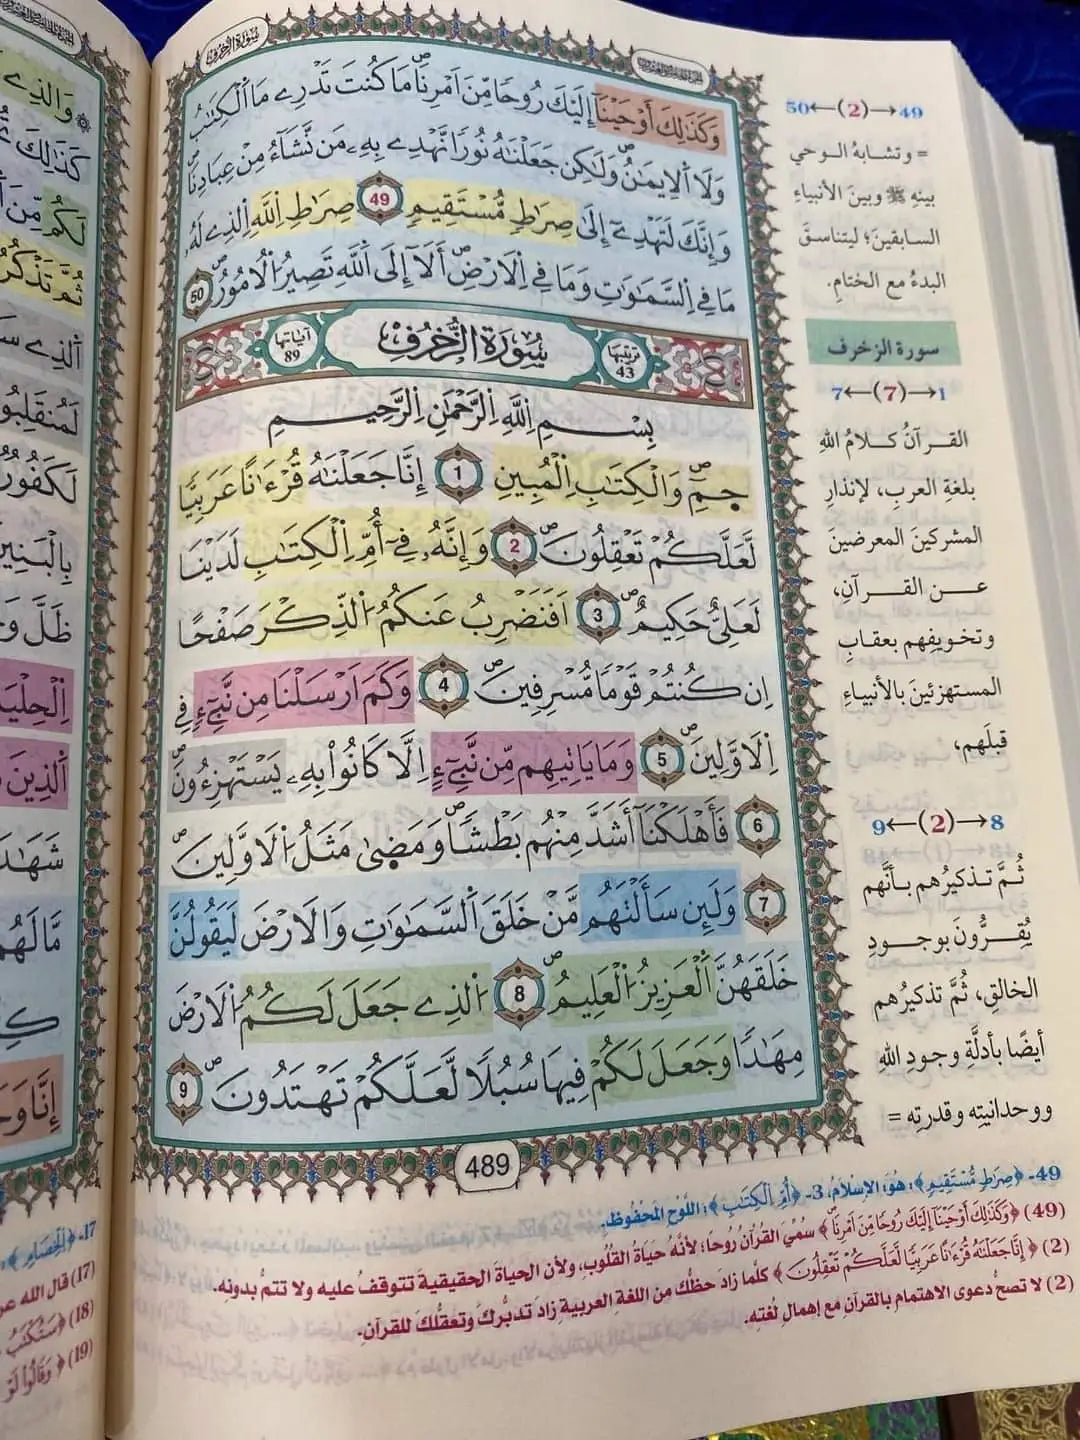 سُورَةُ الزُّخْرُفِ
وَكَذَٰلِكَ أَوْحَيْنَآ إِلَيْكَ رُوحًا مِّنَ اَمْرِنَاۖ مَا كُنتَ تَدْرِے مَا اَ۬لْكِتَٰبُ
وَلَا اَ۬لِايمَٰنُۖ وَلَٰكِن جَعَلْنَٰهُ نُورًا نَّهْدِے بِهِۦ مَن نَّشَآءُ مِنْ عِبَادِنَاۖ
وَإِنَّكَ لَتَهْدِےٓ إِلَىٰ صِرَٰطٍ مُّسْتَقِيمٍ 49 صِرَٰطِ اِ۬للَّهِ اِ۬لذِے لَهُۥ
مَا فِے اِ۬لسَّمَٰوَٰتِ وَمَا فِے اِ۬لَارْضِۖ أَلَآ إِلَى اَ۬للَّهِ تَصِيرُ اُ۬لُامُورُۖ 50
ترتيبها 43 سُورَةُ الزُّخْرُفِ آياتها 89
بِسْمِ اِ۬للَّهِ اِ۬لرَّحْمَٰنِ اِ۬لرَّحِيمِ
حمِٓۖ وَالْكِتَٰبِ اِ۬لْمُبِينِ 1 إِنَّا جَعَلْنَٰهُ قُرْءَٰناً عَرَبِيًّا
لَّعَلَّكُمْ تَعْقِلُونَۖ 2 وَإِنَّهُۥ فِےٓ أُمِّ اِ۬لْكِتَٰبِ لَدَيْنَا
لَعَلِيٌّ حَكِيمٌۖ 3 اَفَنَضْرِبُ عَنكُمُ اُ۬لذِّكْرَ صَفْحًا
اِن كُنتُمْ قَوْمًا مُّسْرِفِينَۖ 4 وَكَمَ اَرْسَلْنَا مِن نَّبِےٓءٍ فِے
اِ۬لَاوَّلِينَۖ 5 وَمَا يَاتِيهِم مِّن نَّبِےٓءٍ اِلَّا كَانُوا۟ بِهِۦ يَسْتَهْزِءُونَۖ
6 فَأَهْلَكْنَآ أَشَدَّ مِنْهُم بَطْشًاۖ وَمَضَىٰ مَثَلُ اُ۬لَاوَّلِينَۖ
7 وَلَئِن سَأَلْتَهُم مَّنْ خَلَقَ اَ۬لسَّمَٰوَٰتِ وَالَارْضَ لَيَقُولُنَّ
خَلَقَهُنَّ اَ۬لْعَزِيزُ اُ۬لْعَلِيمُۖ 8 اُ۬لذِے جَعَلَ لَكُمُ اُ۬لَارْضَ
مِهَٰدًا وَجَعَلَ لَكُمْ فِيهَا سُبُلًا لَّعَلَّكُمْ تَهْتَدُونَۖ 9
489
50←(2)→49
= وتشابهُ الوحيِ
بينه ﷺ وبينَ الأنبياءِ
السابقينَ؛ ليتناسقَ
البدءُ مع الختامِ.
سورة الزخرف
7←(7)→1
القرآنُ كلامُ اللهِ
بلغةِ العربِ، لإنذارِ
المشركينَ المعرضينَ
عن القرآنِ،
وتخويفهم بعقابِ
المستهزئينَ بالأنبياءِ
قبلَهم،
9←(2)→8
ثُمَّ تذكيرُهم بأنَّهم
يُقرُّونَ بوجودِ
الخالقِ، ثُمَّ تذكيرُهم
أيضًا بأدلَّةِ وجودِ اللهِ
ووحدانيتِه وقدرتِه =
49- ﴿صِرَٰطٍ مُّسْتَقِيمٍ﴾: هُوَ: الإسلامُ، 3- ﴿أُمِّ اِ۬لْكِتَٰبِ﴾: اللَّوْحِ المَحْفُوظِ.
(49) ﴿وَكَذَٰلِكَ أَوْحَيْنَآ إِلَيْكَ رُوحًا مِّنَ اَمْرِنَاۖ﴾ سُمِّيَ القُرْآنُ رُوحًا؛ لأنَّهُ حَيَاةُ القُلُوبِ، ولأن الحياةَ الحقيقيةَ تتوقفُ عليه ولا تتمُّ بدونِه.
(2) ﴿إِنَّا جَعَلْنَٰهُ قُرْءَٰناً عَرَبِيًّا لَّعَلَّكُمْ تَعْقِلُونَۖ﴾ كلَّما زادَ حظُّك من اللغةِ العربيةِ زادَ تدبُّركَ وتعقُّلكَ للقرآنِ.
(2) لا تصحُّ دعوى الاهتمام بالقرآنِ مع إهمالِ لُغتِه.
وَالذِے
كَذَٰلِكَ
لَكُم مِّنَ
ثُمَّ تَذْكُرُ
اَ۬لذِے
لَمُنقَلِبُو
لَكَفُورٌ
بِالْبَنِينَ
ظَلَّ
اِ۬لْحِلْيَ
اَ۬لذِينَ
شَهَٰدَ
مَّا لَهُم
إِنَّا وَجَ
17- ﴿اِ۬لْخِصَامِ﴾:
(17) قال الله
(18) ﴿سَتُكْتَبُ
(19) ﴿وَقَالُوا۟ لَوْ